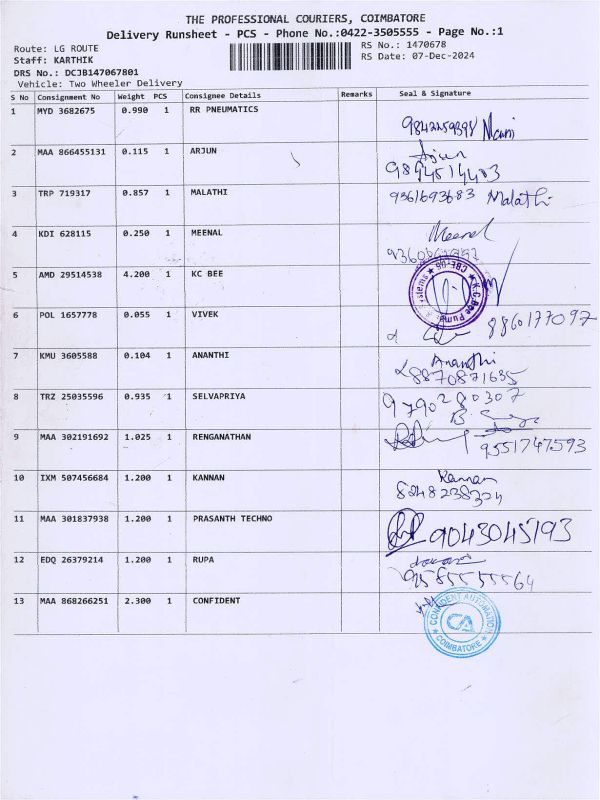 THE PROFESSIONAL COURIERS, COIMBATORE
Delivery Runsheet - PCS - Phone No.:0422-3505555 - Page No.:1
Route: LG ROUTE
Staff: KARTHIK
DRS No.: DCJB147067801
Vehicle: Two Wheeler Delivery
RS No.: 1470678
RS Date: 07-Dec-2024
S No Consignment No Weight PCS Consignee Details Remarks Seal & Signature
1 MYD 3682675 0.990 1 RR PNEUMATICS
Mani
2 MAA 866455131 0.115 1 ARJUN
Arjun
9894514483
3 TRP 719317 0.857 1 MALATHI
9361693683 Malathi
4 KDI 628115 0.250 1 MEENAL
Meenal
5 AMD 29514538 4.200 1 KC BEE
6 POL 1657778 0.055 1 VIVEK
8860177097
7 KMU 3605588 0.104 1 ANANTHI
Ananthi
8870871635
8 TRZ 25035596 0.935 1 SELVAPRIYA
9790280307
9 MAA 302191692 1.025 1 RENGANATHAN
9551747593
10 IXM 507456684 1.200 1 KANNAN
Kannan
8248238324
11 MAA 301837938 1.200 1 PRASANTH TECHNO
9043045193
12 EDQ 26379214 1.200 1 RUPA
9585555564
13 MAA 868266251 2.300 1 CONFIDENT
CONFIDENT AUTOMATION
CA
COIMBATORE